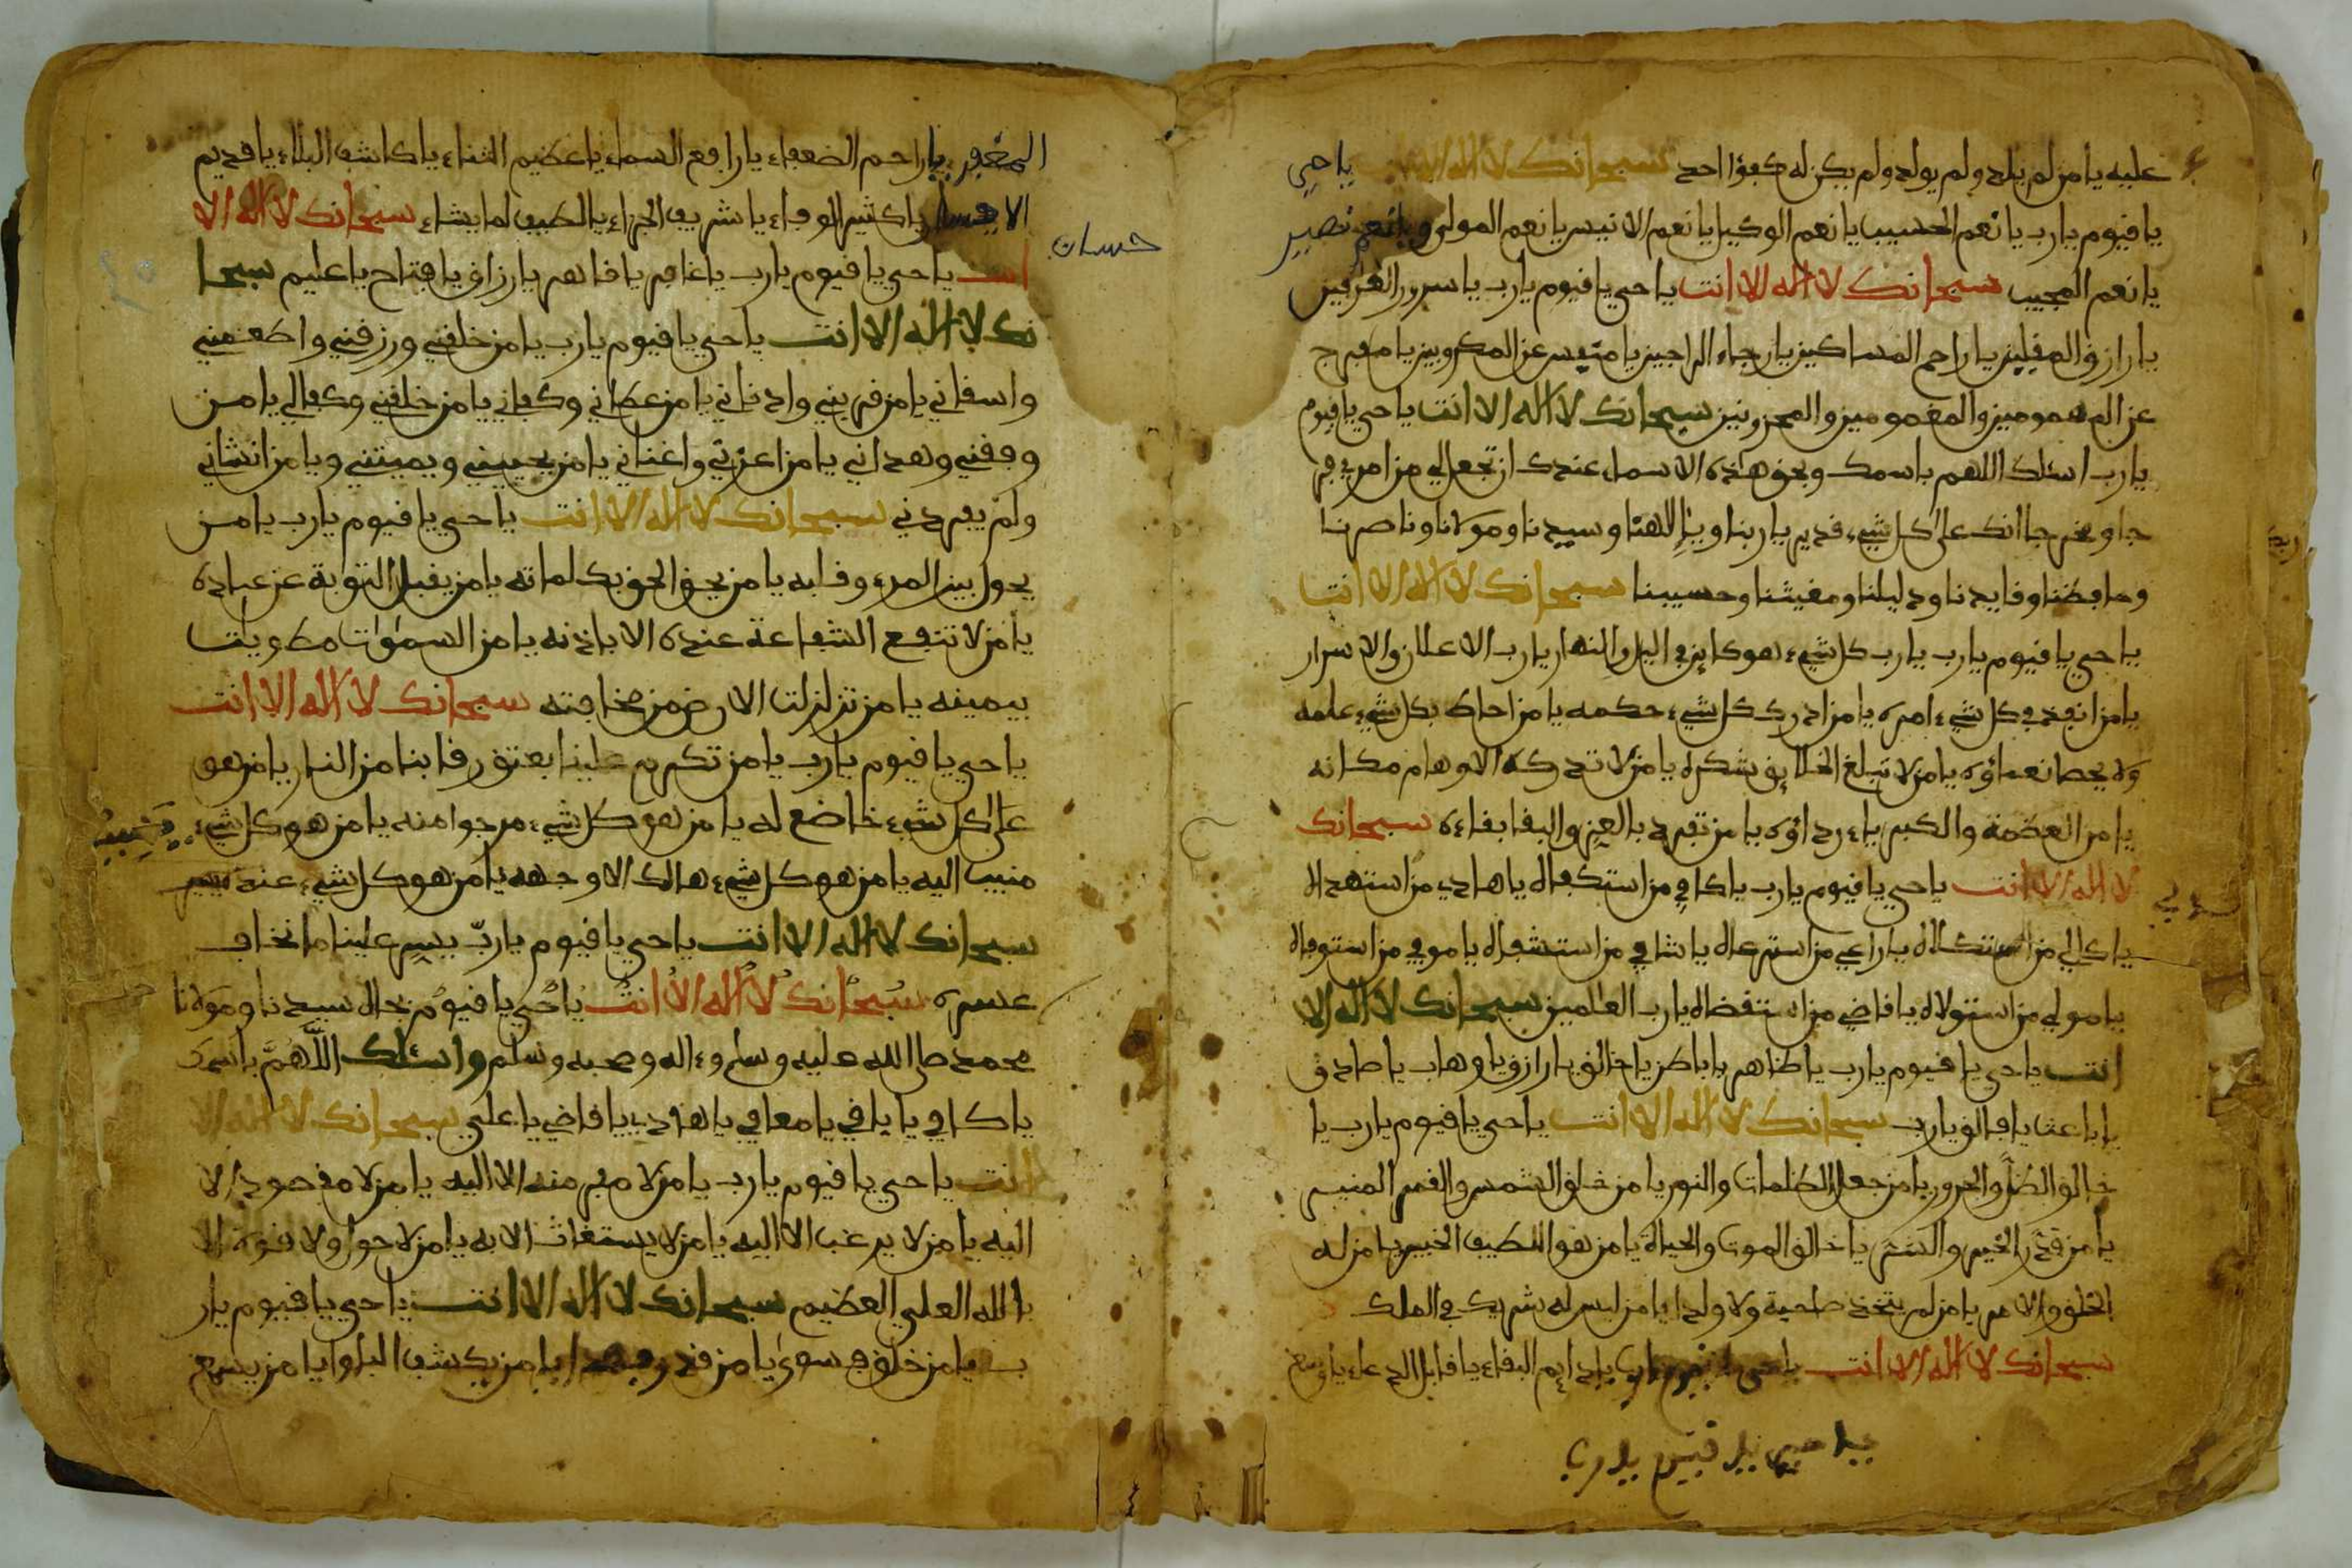 عليه يا من لم يلد ولم يولد ولم يكن له كفؤا احد سبحانك لا اله الا انت يا حي
يا قيوم يا رب يا نعم الحسيب يا نعم الوكيل يا نعم الانيس يا نعم المولى ويا نعم نصير
يا نعم المجيب سبحانك لا اله الا انت يا حي يا قيوم يا رب يا سرور العرفين
يا رازق المقلين يا راحم المساكين يا رجاء الراجين يا منفس عن المكروبين يا مفرج
عن المهمومين والمغمومين والمحزونين سبحانك لا اله الا انت يا حي يا قيوم
يا رب اسئلك اللهم باسمك وبحق هذه الاسماء عندك ان تجعل لي من امري فر
جا ومخرجا انك على كل شيء قدير يا ربنا ويا الاهنا وسيدنا ومولانا وناصرنا
وحافظنا وقايدنا ودليلنا ومغيثنا وحسيبنا سبحانك لا اله الا انت
يا حي يا قيوم يا رب يا رب كل شيء هو كاين في اليل والنهار يا رب الاعلان والاسرار
يا من انفذ في كل شيء امره يا من ادرك كل شيء حكمه يا من احاط بكل شيء علمه
ولا يحصا نعماؤه يا من لا تبلغ الخلايق شكره يا من لا تدركه الاوهام مكانه
يا من العظمة والكبرياء رداؤه يا من تفرد بالعز والبقا بقاءه سبحانك
لا اله الا انت يا حي يا قيوم يا رب يا كافي من استكفاله يا هادي من استهداله
يا كالي من استكلاله يا راعي من استرعاله يا شافي من استشفاله يا موفي من استوفاله
يا مولي من استولاله يا قاضي من استقضاله يا رب العالمين سبحانك لا اله الا
انت يا حي يا قيوم يا رب يا ظاهر يا باطن يا خالق يا رازق يا وهاب يا صادق
يا باعث يا فالق يا رب سبحانك لا اله الا انت يا حي يا قيوم يا رب يا
خالق الظل والحرور يا من جعل الظلمات والنور يا من خلق الشمس والقمر المنير
يا من قدر الخير والشر يا خالق الموت والحياة يا من هو اللطيف الخبير يا من له
الخلق والامر يا من لم يتخذ صاحبة ولا ولدا يا من ليس له شريك في الملك
سبحانك لا اله الا انت يا حي يا قيوم يا رب يا دايم البقاء يا قابل الدعاء يا واسع
يا حي يا قيوم يا رب
المغفرة يا راحم الضعفاء يا رافع السماء يا عظيم الثناء يا كاشف البلاء يا قديم
حسان
يا كثير الوفاء يا شريف الجزاء يا لطيف لما يشاء سبحانك لا اله الا
انت يا حي يا قيوم يا رب يا غافر يا قاهر يا رزاق يا فتاح يا عليم سبحا
نك لا اله الا انت يا حي يا قيوم يا رب يا من خلقني ورزقني واطعمني
واسقاني يا من قربني وادناني يا من عطاني وكفاني يا من خلقني وكفالي يا من
وفقني وهداني يا من اعزني واغناني يا من يحييني ويميتني ويا من انشاني
ولم يفردني سبحانك لا اله الا انت يا حي يا قيوم يا رب يا من
يحول بين المرء وقلبه يا من يحق الحق بكلماته يا من يقبل التوبة عن عباده
يا من لا تنفع الشفاعة عنده الا باذنه يا من السموات مطويات
بيمينه يا من تزلزلت الارض من مخافته سبحانك لا اله الا انت
يا حي يا قيوم يا رب يا من تكرم علينا بعتق رقابنا من النار يا من هو
على كل شيء خاضع له يا من هو كل شيء مرجوا منه يا من هو كل شيء
منيب اليه يا من هو كل شيء هالك الا وجهه يا من هو كل شيء عنده يسير
سبحانك لا اله الا انت يا حي يا قيوم يا رب يسر علينا ما نخاف
عسره سبحانك لا اله الا انت يا حي يا قيوم بحال سيدنا ومولانا
محمد صلى الله عليه وسلم وءاله وصحبه وسلم واسئلك اللهم باسمك
يا كافي يا يافي يا معافي يا هادي يا قاضي يا علي سبحانك لا اله الا
انت يا حي يا قيوم يا رب يا من لا مفر منه الا اليه يا من لا مقصود الا
اليه يا من لا يرغب الا اليه يا من لا يستغاث الا به يا من لا حول ولا قوة الا
بالله العلي العظيم سبحانك لا اله الا انت يا حي يا قيوم يا ر
ب يا من خلق فسوى يا من قدر فهدا يا من يكشف البلوا يا من يسمع